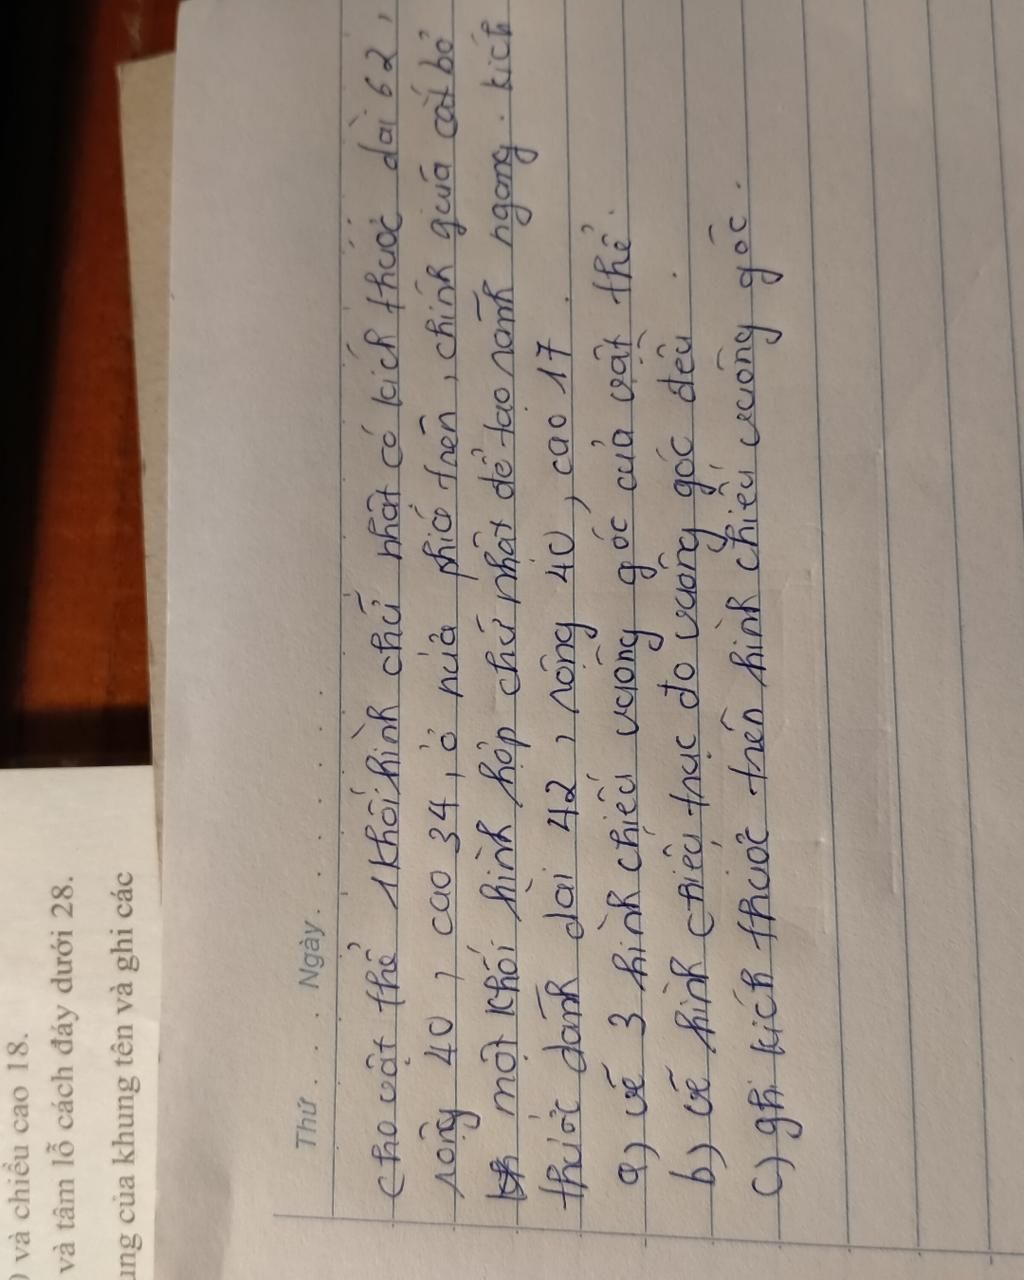 ) và chiều cao 18.
và tâm lỗ cách đáy dưới 28.
ung của khung tên và ghi các
Thứ . . . Ngày. . . . . . . . .
cho vật thể 1 khối hình chữ nhật có kích thước dài 62,
rộng 40, cao 34, ở nửa phía trên, chính giữa cắt bỏ
một khối hình hộp chữ nhật để tạo rãnh ngang. kích
thước dảnh dài 42, rộng 40, cao 17.
a) vẽ 3 hình chiếu vuông góc của vật thể.
b) vẽ hình chiếu trục đo vuông góc đều.
c) ghi kích thước trên hình chiếu vuông góc.